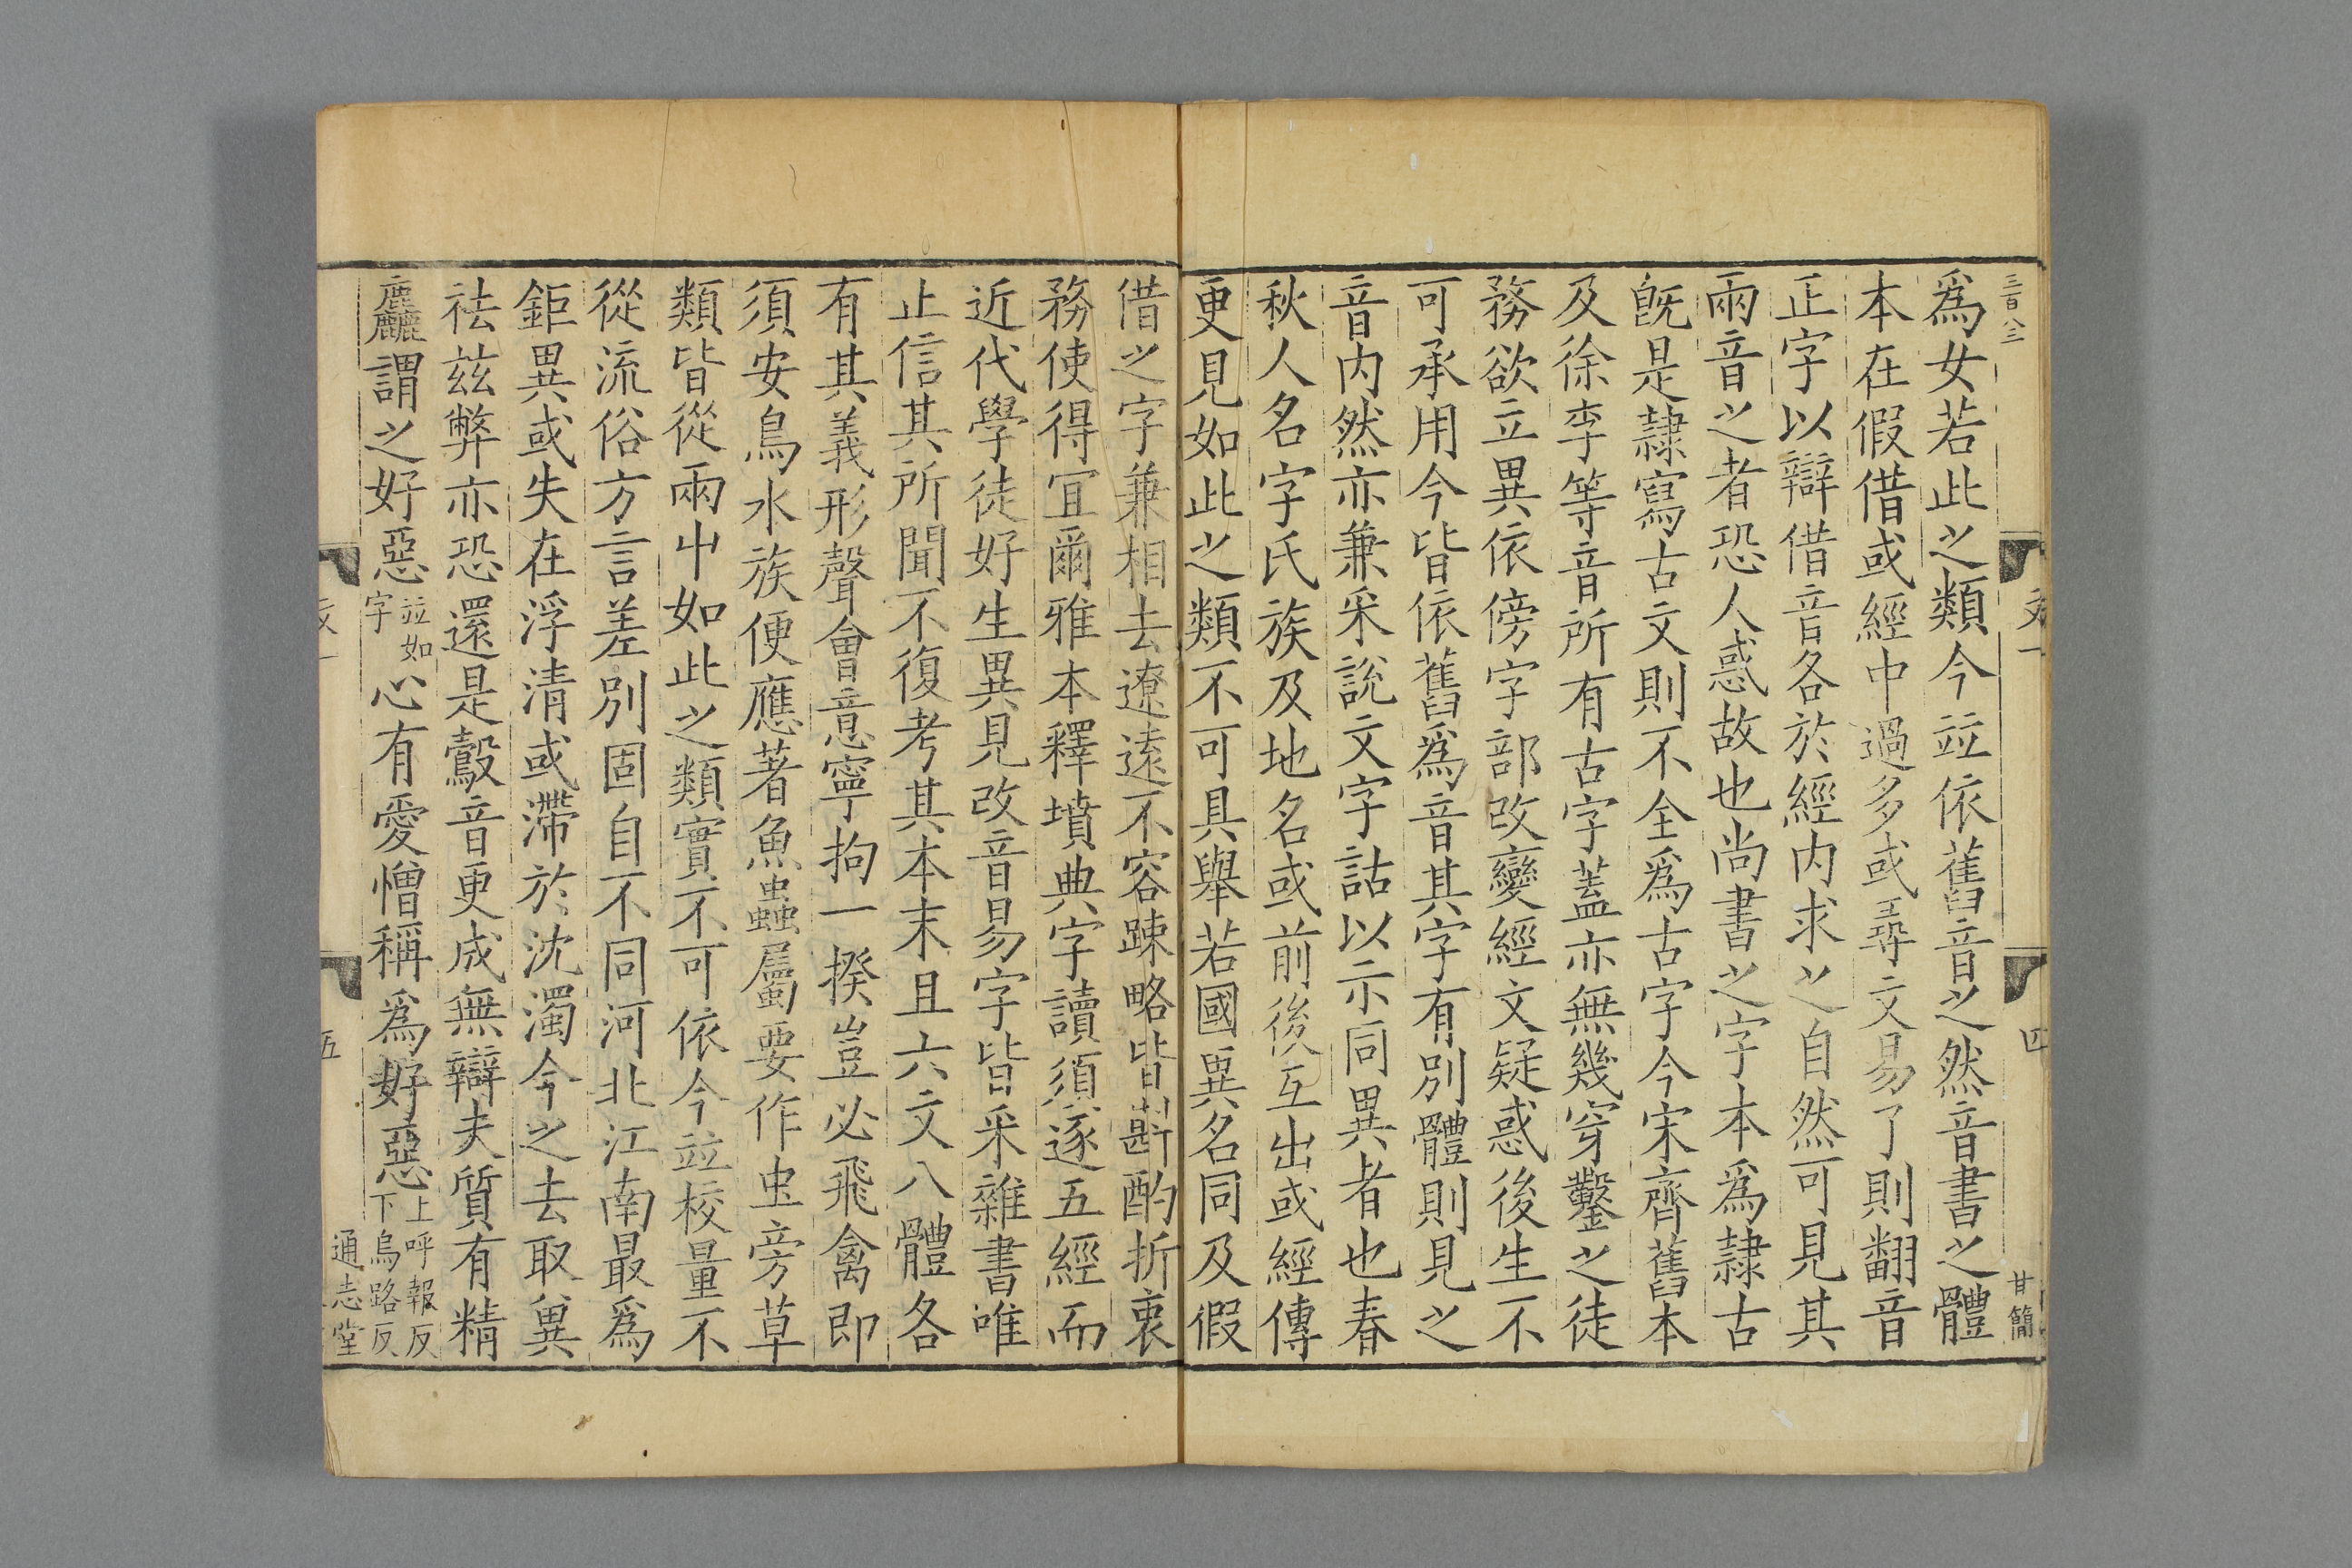 三百八三
文一
四
甘簡
爲女若此之類今竝依舊音之然音書之體
本在假借或經中過多或尋文易了則翻音
正字以辯借音各於經内求之自然可見其
兩音之者恐人惑故也尚書之字本爲隷古
旣是隷寫古文則不全爲古字今宋齊舊本
及徐李等音所有古字蓋亦無幾穿鑿之徒
務欲立異依傍字部改變經文疑惑後生不
可承用今皆依舊爲音其字有別體則見之
音内然亦兼采說文字詁以示同異者也春
秋人名字氏族及地名或前後互出或經傳
更見如此之類不可具舉若國異名同及假
借之字兼相去遼遠不容踈略皆斟酌折衷
務使得宜爾雅本釋墳典字讀須逐五經而
近代學徒好生異見改音易字皆采雜書唯
止信其所聞不復考其本末且六文八體各
有其義形聲會意寧拘一揆豈必飛禽即
須安鳥水族便應著魚蟲屬要作虫旁草
類皆從兩屮如此之類實不可依今竝校量不
從流俗方言差別固自不同河北江南最爲
鉅異或失在浮清或滯於沈濁今之去取兾
祛茲弊亦恐還是鷇音更成無辯夫質有精
麤謂之好惡竝如字心有愛憎稱爲好惡上呼報反下烏路反
五
通志堂